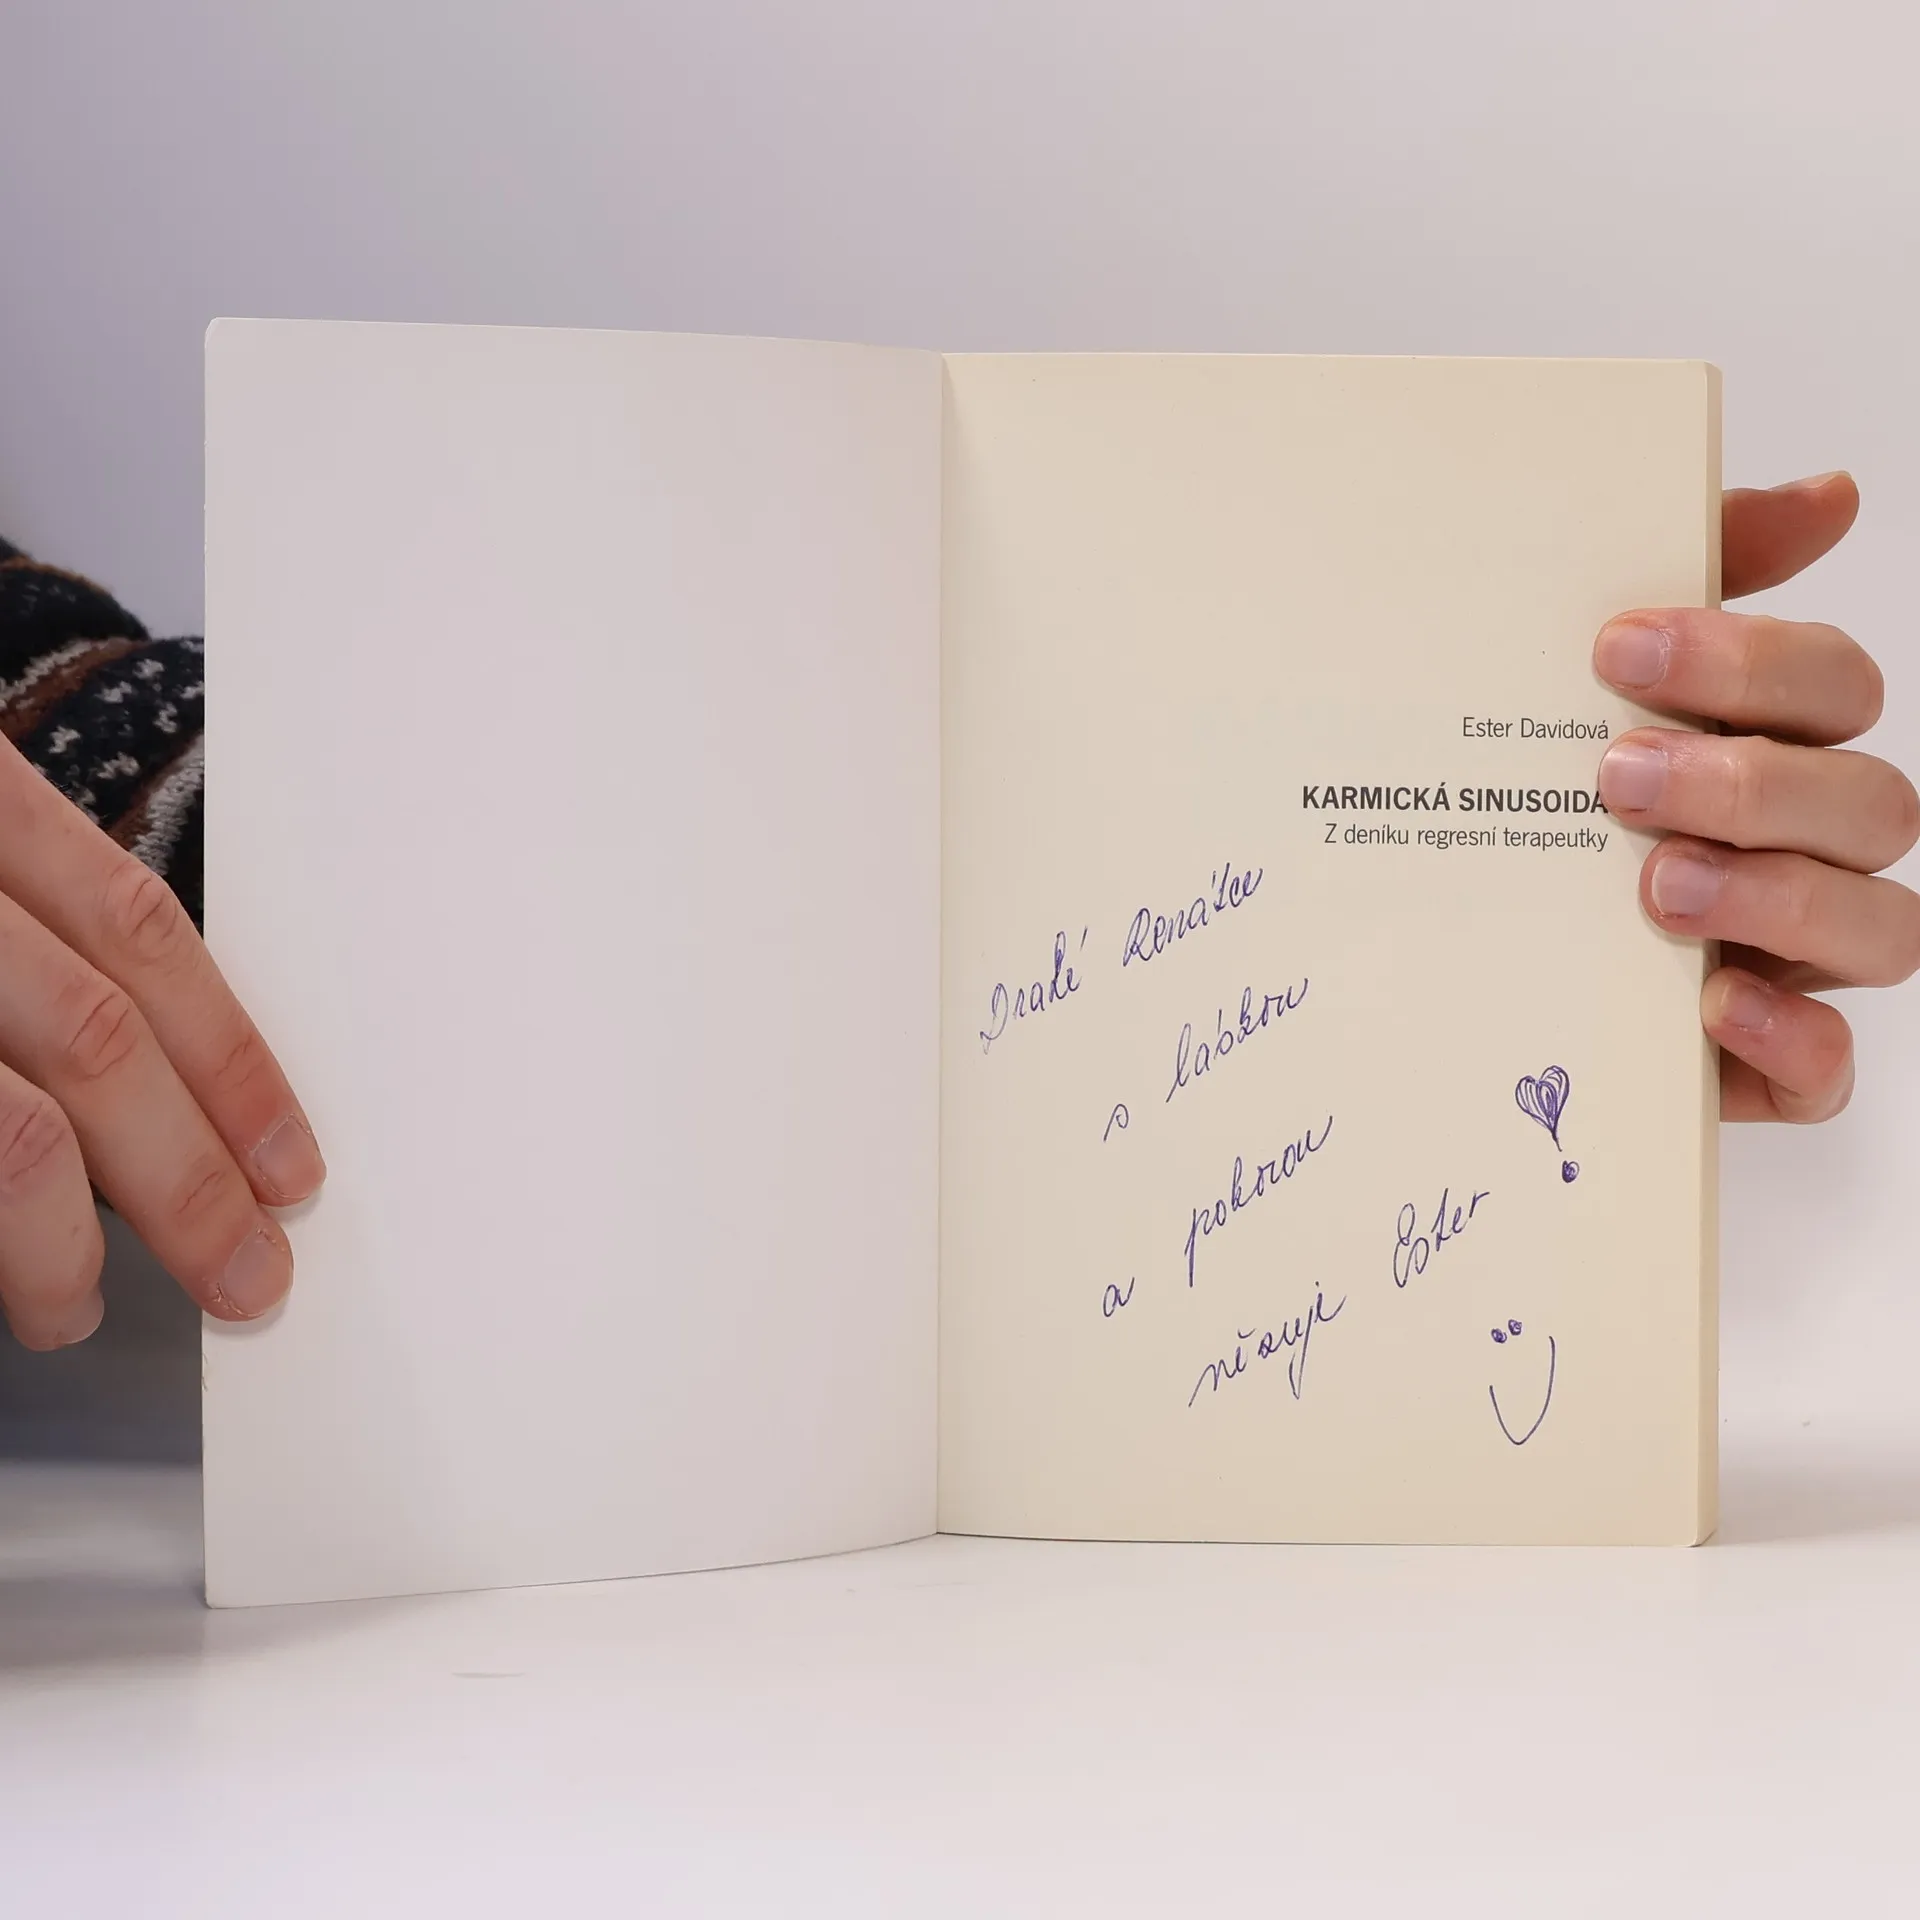 Ester Davidová
KARMICKÁ SINUSOIDA
Z deníku regresní terapeutky
Drahé Renátce
s láskou
a pokorou
věnuje Ester